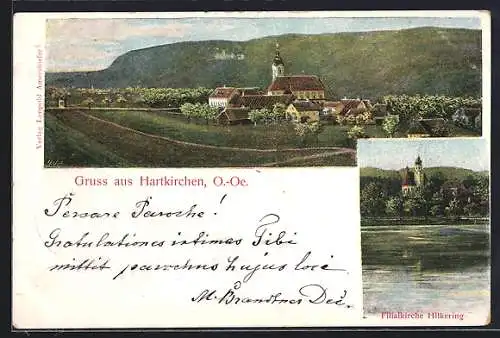 Verlag Leopold Amersdorfer
Gruss aus Hartkirchen, O.-Oe.
Percare Paroche!
Gratulationes intimas Tibi
mittit parochus hujus loci
M. Brandtner Dec.
Filialkirche Hilkering